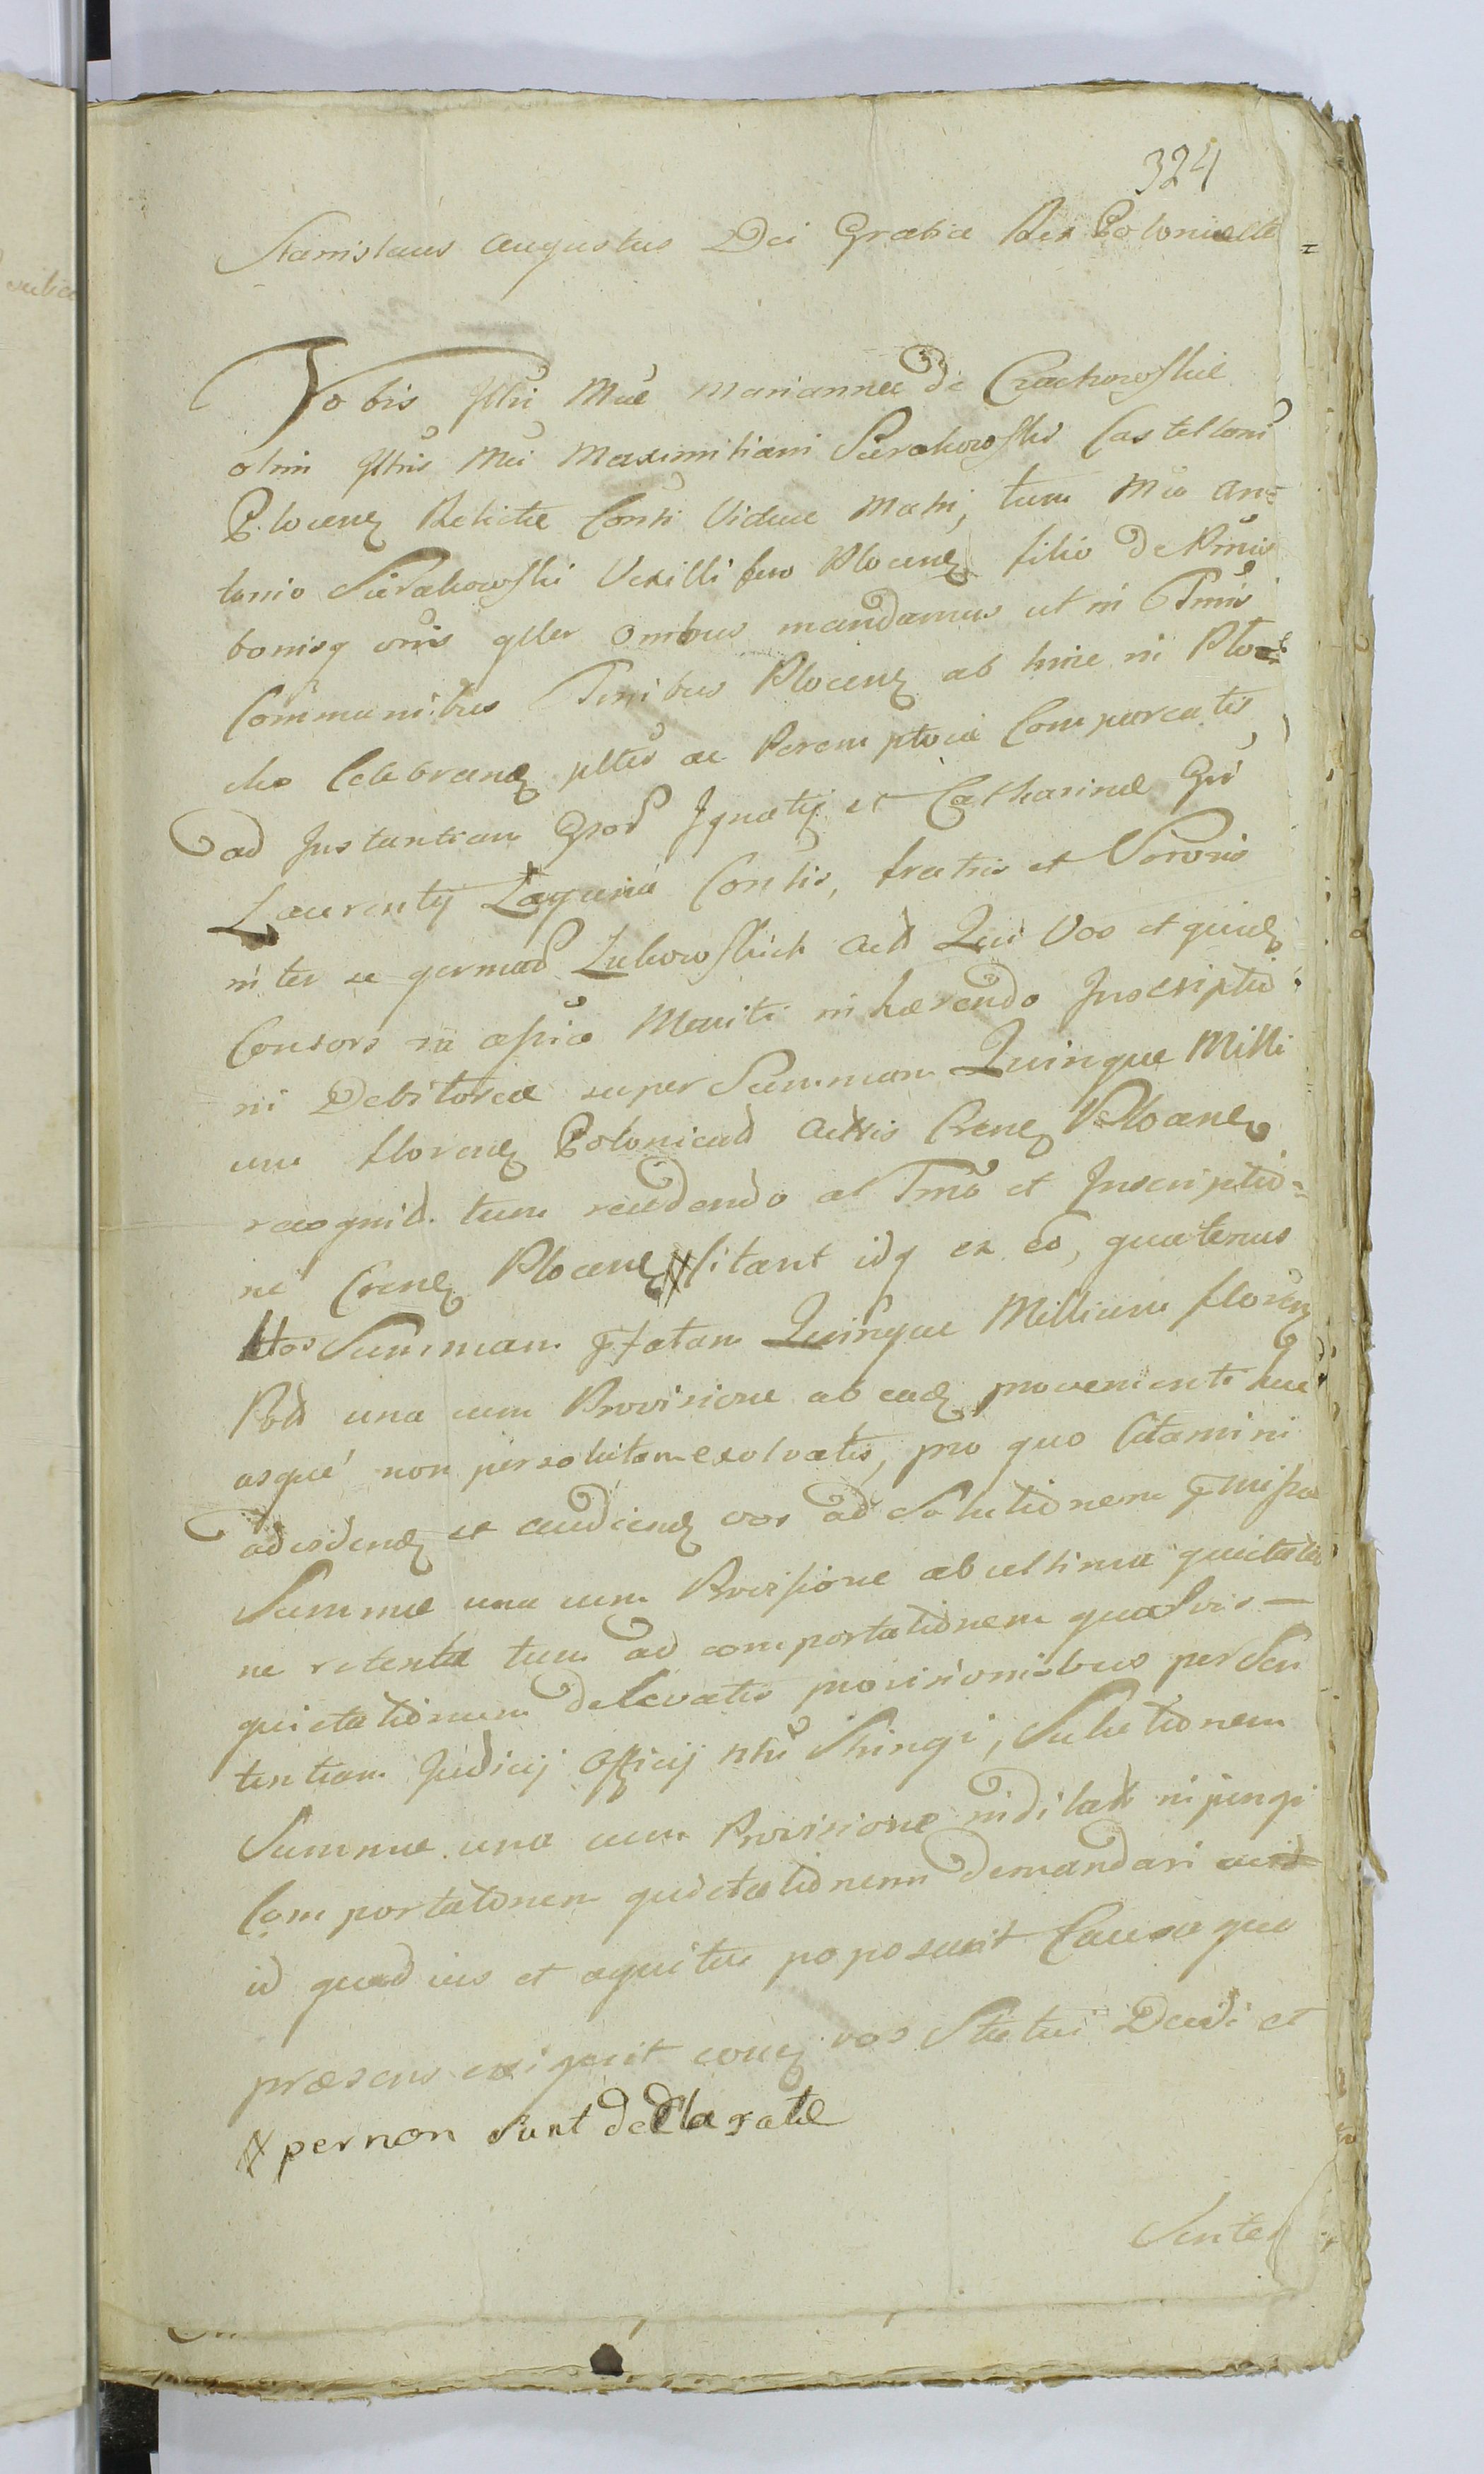 324
Stanislaus Augustus Dei Gratia Rex Poloniae etc
Vobis Illri Mae Mariannae de Czachowskie
olim Illris Mci Maximiliani Sierakowski Castellani
Plocen Relictae Conti Viduae Matri, tum Mco An=
tonio Sierakowski Vexillifero Plocen filio de Prnis
bonisq vris gller ombus mandamus ut in Tmis
Communibus Terribus Plocen ab hinc in Plo=
cko Celebran plter ac Peremptorie Compareatis,
ad Instantiam Gsor Ignatij et Catharinae Gsi
Laurentij Łaguna Consortis, fratris et Sororis
inter se german Łukowskich Act Qui Vos et quid
Consors in assia Mariti inhaerendo Inscriptio
ni Debitoreae super Summam Quinque Milli
um floren Polonicad Actis Cren Plocen
recognit. tum reddendo al Tmo et Inscriptio=
ni Cren Plocen # Citant idq ex eo, quatenus
Vos Summam pfatam Quinque Millium floren
Pold una cum Provisione ab ead proveniente huc
usque non persolutam exolvatis, pro quo Citamini
ad viden et audien vos ad Solutionem pmissae
Summae una cum Provisione ab ultima quietatio
ne retenta tum ad comportationem quasvis —
quietationum de levatis provisionibus per Sen
tentiam Judicij Officij nri Stringi, Solutionem
Summae una cum Provisione indilate injungi
Comportationem quietationum demandari
id quod ius et aequitas poposcerit Causaque
praesens exigerit circa vos Statui Decidi et
# per non sunt declaratae
Senten